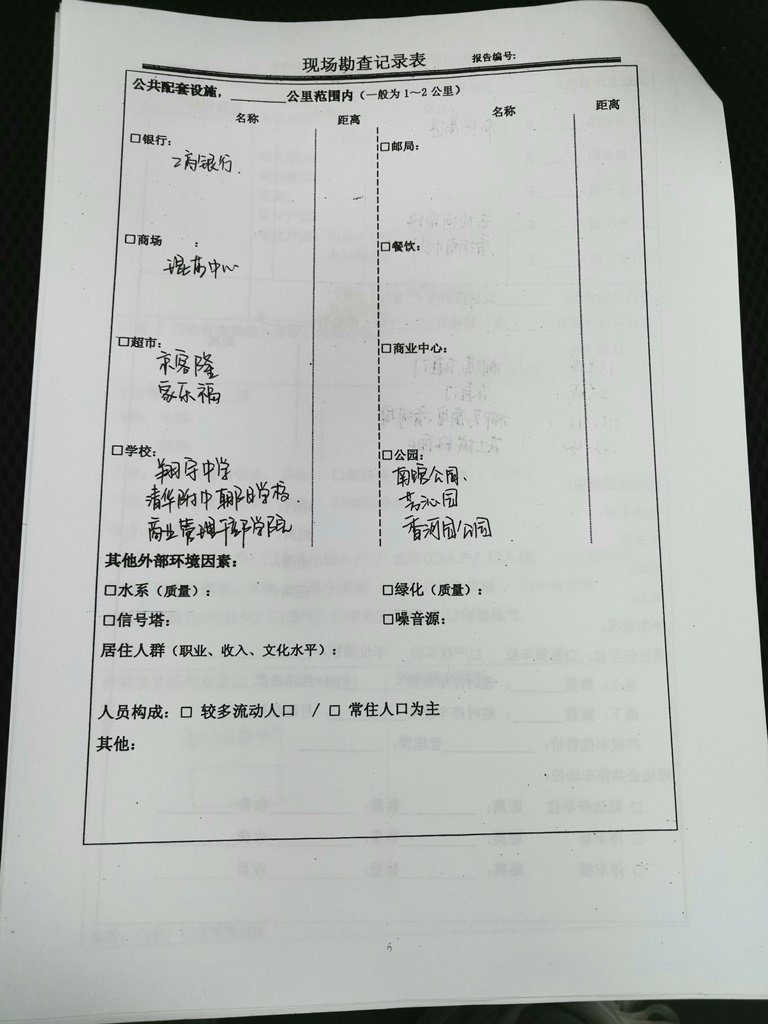 现场勘查记录表 报告编号:
公共配套设施，______公里范围内（一般为 1～2 公里）
名称 距离 名称 距离
□银行: □邮局:
工商银行
□商场 : □餐饮:
琨莎中心
□超市: □商业中心:
京客隆
家乐福
□学校: □公园:
翔宇中学 南堤公园、
清华附中朝阳学校. 芳沁园
商业管理干部学院 香河园公园
其他外部环境因素:
□水系（质量）: □绿化（质量）:
□信号塔: □噪音源:
居住人群（职业、收入、文化水平）:
人员构成: □ 较多流动人口 / □ 常住人口为主
其他: